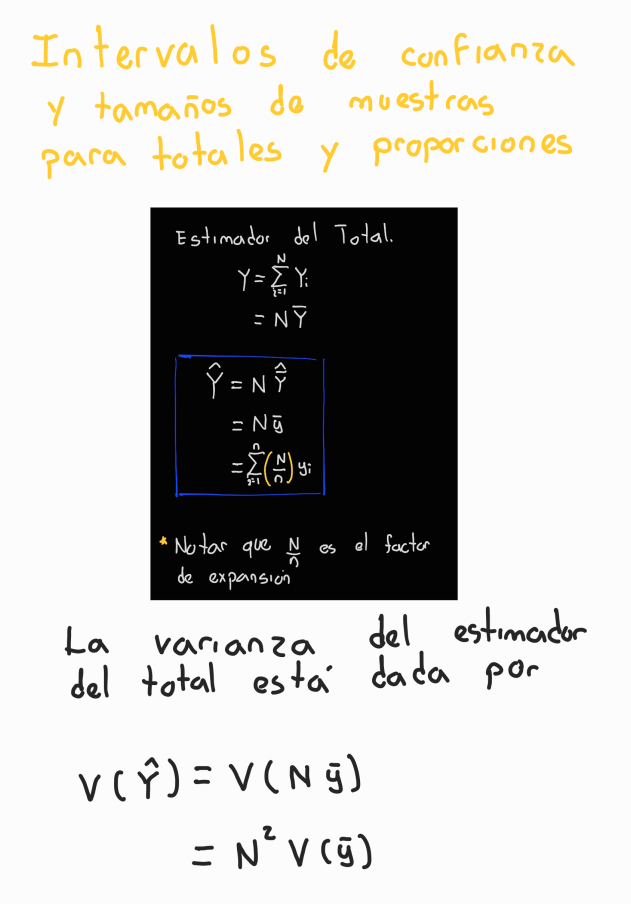 Intervalos de confianza
y tamaños de muestras
para totales y proporciones
Estimador del Total.
Y = ∑_{i=1}^{N} Y_i
= N Ȳ
Ŷ = N \hat{Ȳ}
= N ȳ
= ∑_{i=1}^{n} (N/n) y_i
* Notar que N/n es el factor
de expansión
La varianza del estimador
del total está dada por
V(Ŷ) = V(N ȳ)
= N² V(ȳ)